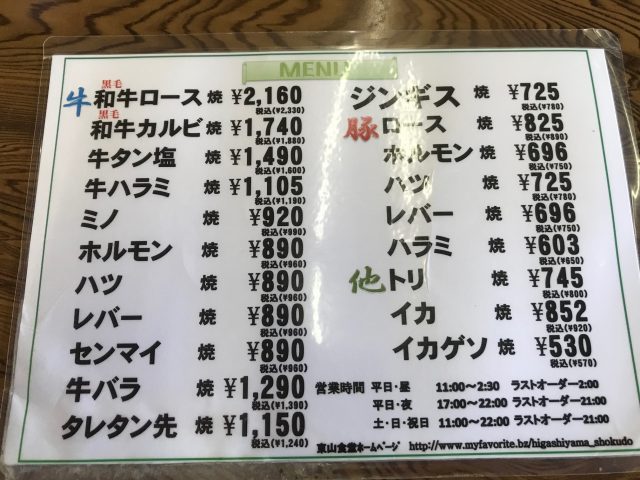 MENU
牛
黒毛
和牛ロース 焼 ¥2,160
税込(¥2,330)
黒毛
和牛カルビ 焼 ¥1,740
税込(¥1,880)
牛タン塩 焼 ¥1,490
税込(¥1,600)
牛ハラミ 焼 ¥1,105
税込(¥1,190)
ミノ 焼 ¥920
税込(¥990)
ホルモン 焼 ¥890
税込(¥960)
ハツ 焼 ¥890
税込(¥960)
レバー 焼 ¥890
税込(¥960)
センマイ 焼 ¥890
税込(¥960)
牛バラ 焼 ¥1,290
税込(¥1,390)
タレタン先 焼 ¥1,150
税込(¥1,240)
ジンギス 焼 ¥725
税込(¥780)
豚 ロース 焼 ¥825
税込(¥890)
ホルモン 焼 ¥696
税込(¥750)
ハツ 焼 ¥725
税込(¥780)
レバー 焼 ¥696
税込(¥750)
ハラミ 焼 ¥603
税込(¥650)
他 トリ 焼 ¥745
税込(¥800)
イカ 焼 ¥852
税込(¥920)
イカゲソ 焼 ¥530
税込(¥570)
営業時間 平日・昼 11:00〜2:30 ラストオーダー2:00
平日・夜 17:00〜22:00 ラストオーダー21:00
土・日・祝日 11:00〜22:00 ラストオーダー21:00
東山食堂ホームページ http://www.myfavorite.bz/higashiyama_shokudo